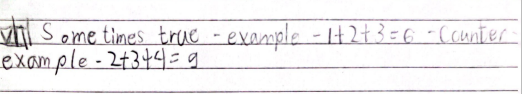 viii Sometimes true - example - 1+2+3=6 - Counter
example - 2+3+4=9